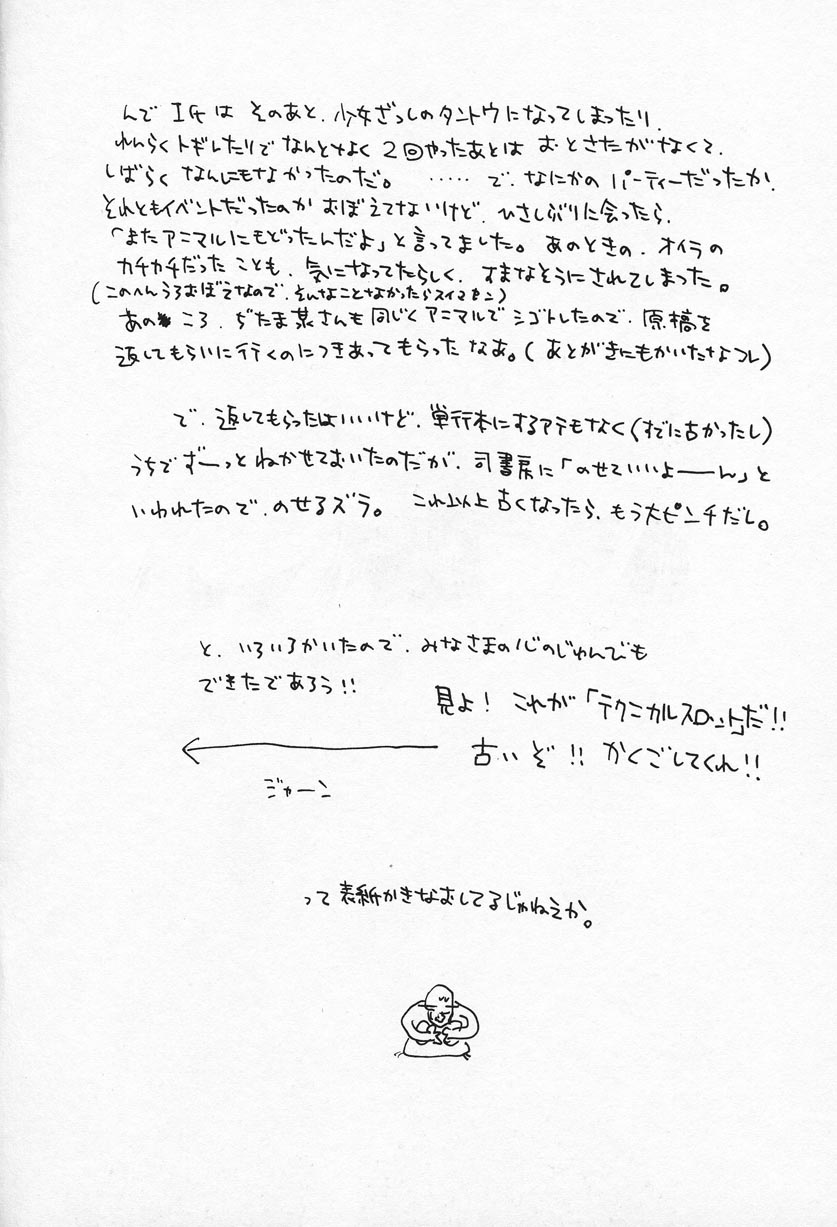 んで I氏は そのあと、少女ざっしのタントウになってしまったり、
れんらくトギレたりで なんとなく 2回やったあとは おとさたがなくて、
しばらく なんにもなかったのだ。 ‥‥‥ で、なにかの パーティーだったか、
それともイベントだったのか おぼえてないけど、ひさしぶりに会ったら、
「またアニマルにもどったんだよ」と言ってました。 あのときの、オイラの
カチカチだった ことも、気になってたらしく、すまなそうにされてしまった。
(このへんうろおぼえなので、そんなことなかったらスイマセン)
あの ころ、ぢたま某さんも 同じくアニマルでシゴトしたので、原稿を
返してもらいに行くのにつきあってもらった なあ。(あとがきにもかいたなコレ)
で、返してもらったはいいけど、単行本にするアテもなく(すでに古かったし)
うちで ずーっと ねかせておいたのだが、司書房に「のせていいよーーん」と
いわれたので、のせるズラ。 これ以上古くなったら、もう大ピンチだし。
と、いろいろかいたので、みなさまの心のじゅんびも
できたであろう!!
見よ! これが「テクニカルスロット」だ!!
古いぞ!! かくごしてくれ!!
ジャーン
って 表紙かきなおしてるじゃねえか。